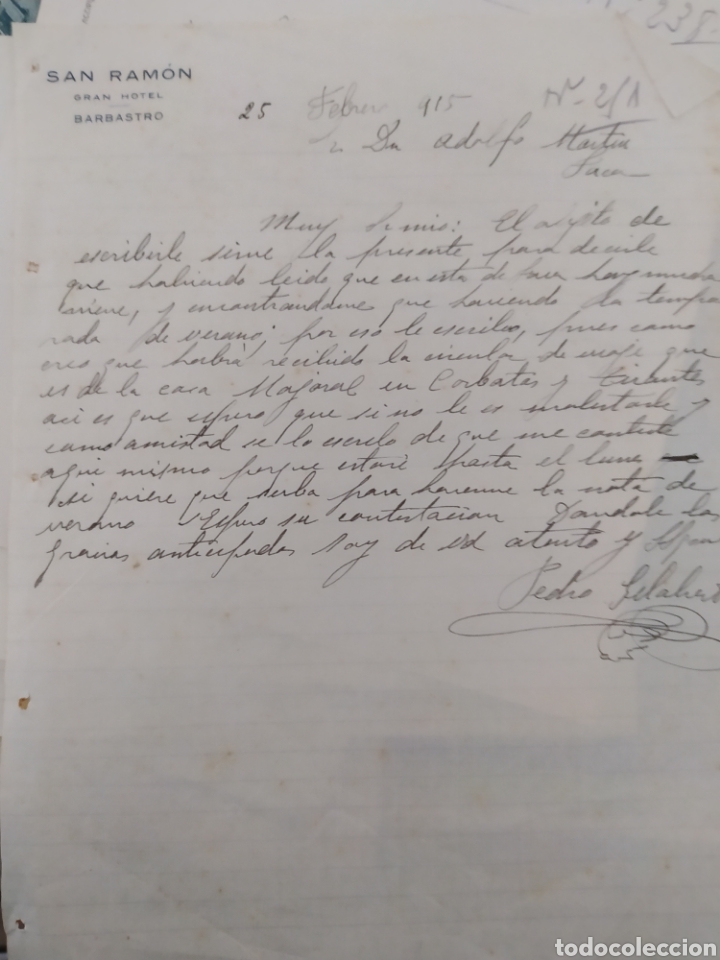 238
SAN RAMÓN
GRAN HOTEL
BARBASTRO
25 Febrer 915 Nº 2/1
Dn Adolfo Martin
Jaca
Muy Sr mio: El objeto de
escribirle sirve la presente para decirle
que habiendo leido que en esta de Jaca hay mucha
nieve, y encontrandome que haciendo la tempo
rada de verano; por eso le escribo, pues como
creo que habra recibido la circula de viaje que
es de la casa Majoral en Corbatas y Tirantes
asi es que espero que si no le es molestarle y
como amistad se lo escribo de que me conteste
aqui mismo porque estaré hasta el lune
si quiere que suba para hacerme la nota de
verano Espero su contestacion Dandole las
gracias anticipadas soy de Vd atento y
Pedro Gelabert
todocoleccion